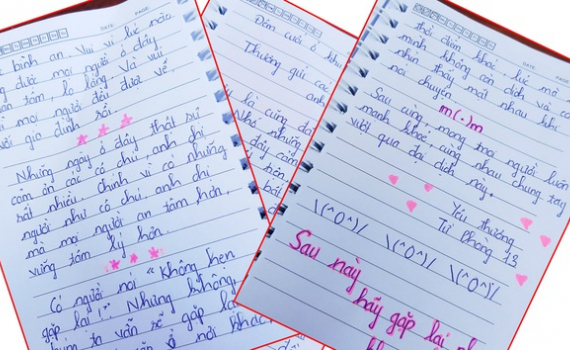 bình an. Vui vì lúc nào
được mọi người ở đây
tâm, lo lắng. Và vui
mọi người đều được về
với gia đình rồi
Những ngày ở đây thật sự
cảm ơn các cô chú anh chị
rất nhiều. Chính vì có những
người như cô chú, anh chị
mà mọi người an tâm hơn,
vững tâm lý hơn.
Có người nói "Không hẹn
gặp lại!". Nhưng không,
ta vẫn sẽ gặp lại
nơi khác,
Đêm cuối ở khu
Thương gửi các
anh
là cùng do
Nhỏ những
đây cảm
hơn
thời điểm khác, lúc mà
mình không còn dịch và có
nhìn thấy mặt nhau khi
nói chuyện
m(.)m
Sau cùng, mong mọi người luôn
mạnh khoẻ, cùng nhau chung tay
vượt qua đại dịch này.
Yêu thương
Từ phòng 13
\(^o^)/ \(^o^)/ \(^o^)/
Sau này
hãy gặp lại